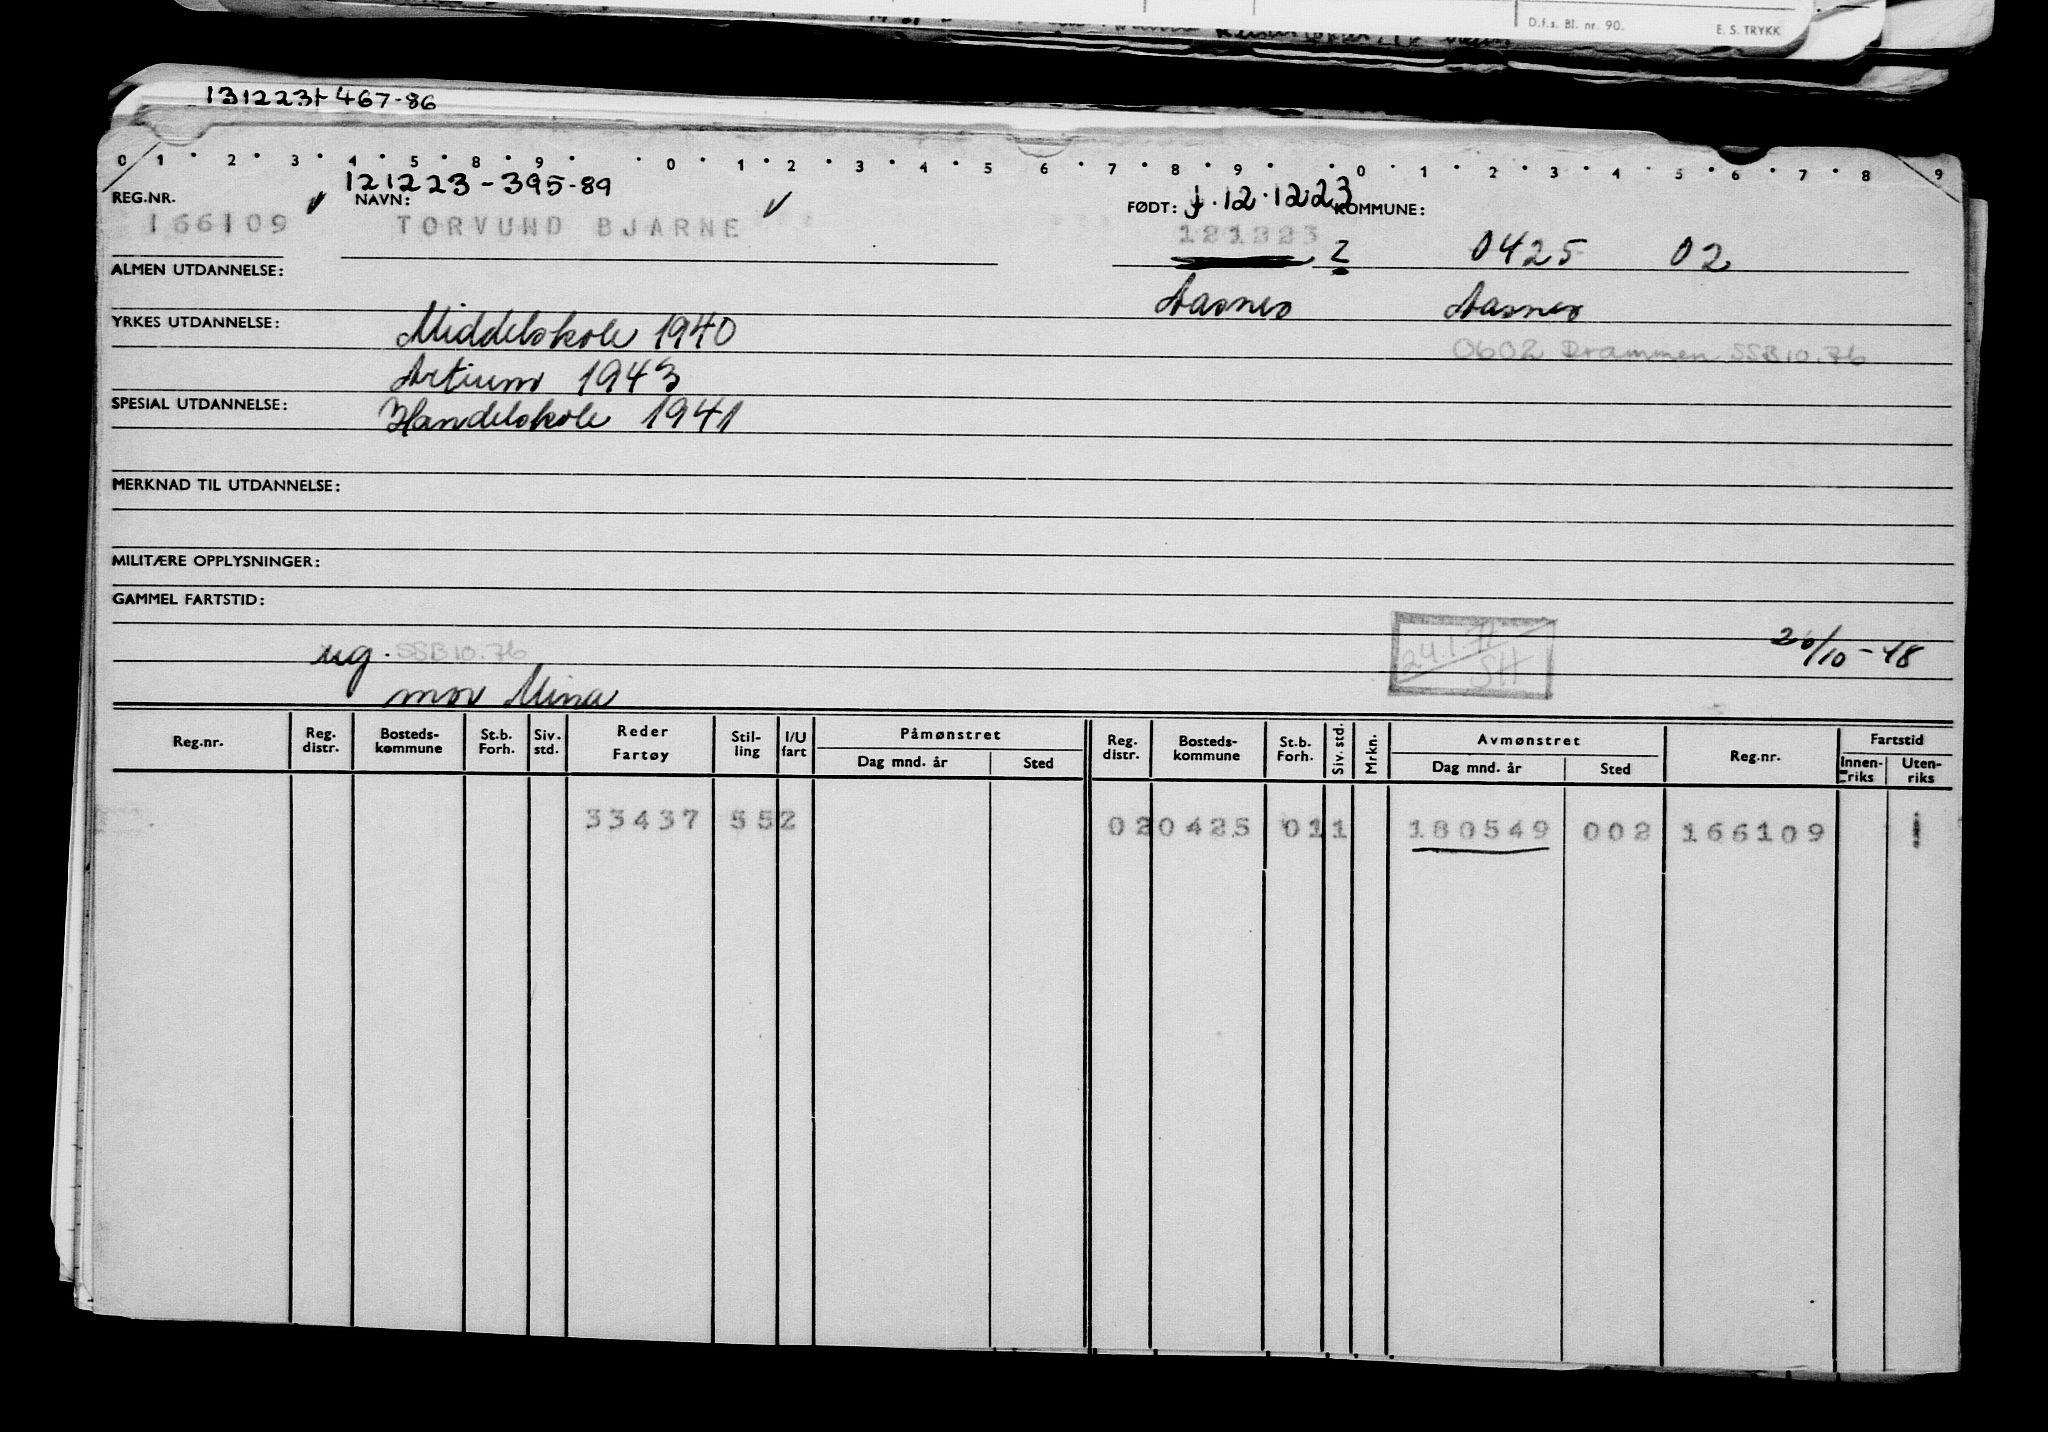 D.f.s. Bl. nr. 90. E. S. TRYKK
131223+ 467-86
0 1 2 3 4 5 8 9 0 1 2 3 4 5 6 7 8 9 0 1 2 3 4 5 6 7 8 9
121223-395-89
REG.NR. NAVN: FØDT: f.12.12.23 KOMMUNE:
166109 TORVUND BJARNE 121223 2 0425 02
ALMEN UTDANNELSE: Aasnes Aasnes
YRKES UTDANNELSE: Middelskole 1940 0602 Drammen SSB 10.76
Artium 1943
SPESIAL UTDANNELSE: Handelskole 1941
MERKNAD TIL UTDANNELSE:
MILITÆRE OPPLYSNINGER:
GAMMEL FARTSTID:
ug. SSB 10.76 24.1.72 SH 20/10-48
mor Mina
Reg.nr. Reg. distr. Bosteds-kommune St.b. Forh. Siv. std. Reder Fartøy Stil-ling I/U fart Påmønstret Dag mnd. år Sted Reg. distr. Bosteds-kommune St.b. Forh. Siv. std. Mrkn. Avmønstret Dag mnd. år Sted Reg.nr. Fartstid Innen-riks Uten-riks
33437 552 02 0425 01 1 180549 002 166109 1